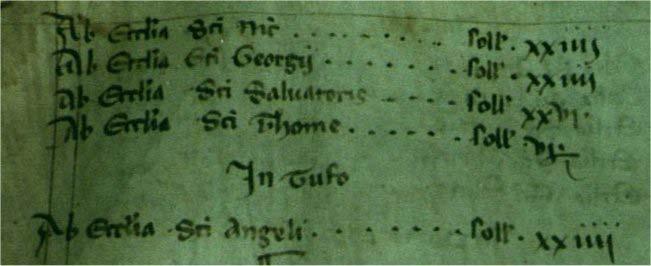 Ab Ecclia Sci Nic . . . . . . . . . Soll . xxiiij
Ab Ecclia Sci Georgij . . . . . . Soll . xxiiij
Ab Ecclia Sci Salvatoris . . . . Soll . xxvj.
Ab Ecclia Sci Thome . . . . . . Soll . vj.
In Tufo
Ab Ecclia . Sci Angeli . . . . . . . . Soll . xxiiij